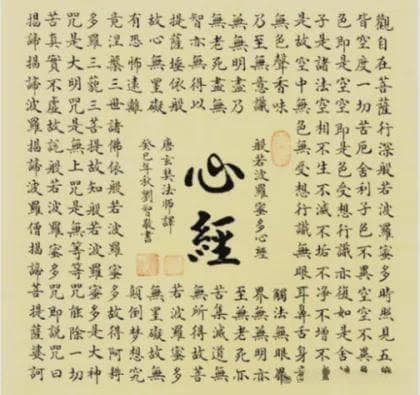 觀自在菩薩行深般若波羅蜜多時照見五
皆空度一切苦厄舍利子色不異空空不異
色即是空空即是色受想行識亦復如是舍
子是諸法空相不生不滅不垢不淨不增不
是故空中無色無受想行識無眼耳鼻舌身
無色聲香味
觸法無眼界
乃至無意識
界無無明亦
無無明盡乃
至無老死亦
無老死盡無
苦集滅道無
智亦無得以
無所得故菩
提薩埵依般
若波羅蜜多
故心無罣礙
無罣礙故無
有恐怖遠離
顛倒夢想究
竟涅槃三世諸佛依般若波羅蜜多故得阿
多羅三藐三菩提故知般若波羅蜜多是大神
咒是大明咒是無上咒是無等等咒能除一切
苦真實不虛故說般若波羅蜜多咒即說咒曰
揭諦揭諦波羅揭諦波羅僧揭諦菩提薩婆訶
般若波羅蜜多心經
心經
唐玄奘法師譯
癸巳年秋劉智敬書